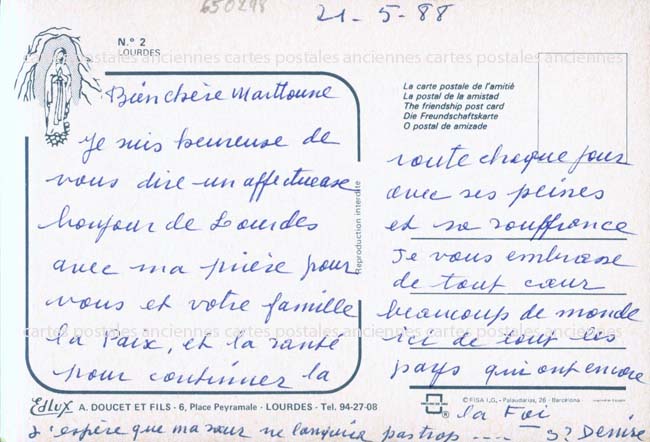 650298
21-5-88
N.º 2
LOURDES
Bien chère Marthoune
Je suis heureuse de
vous dire un affectueuse
bonjour de Lourdes
avec ma prière pour
vous et votre famille
la Paix, et la santé
pour continuer la
La carte postale de l'amitié
La postal de la amistad
The friendship post card
Die Freundschaftskarte
O postal de amizade
route chaque jour
avec ses peines
et sa souffrance
Je vous embrasse
de tout cœur
beaucoup de monde
ici de tout les
pays qui ont encore
la Foi
j'espère que ma sœur ne languira pas trop ---- Denise
Reproduction interdite
cartes postales anciennes cartes postales anciennes cartes postales anciennes
cartes postales anciennes cartes postales anciennes cartes postales anciennes
Edlux A. DOUCET ET FILS - 6, Place Peyramale - LOURDES - Tel. 94-27-08
© FISA I.G. - Palaudarias, 26 - Barcelona